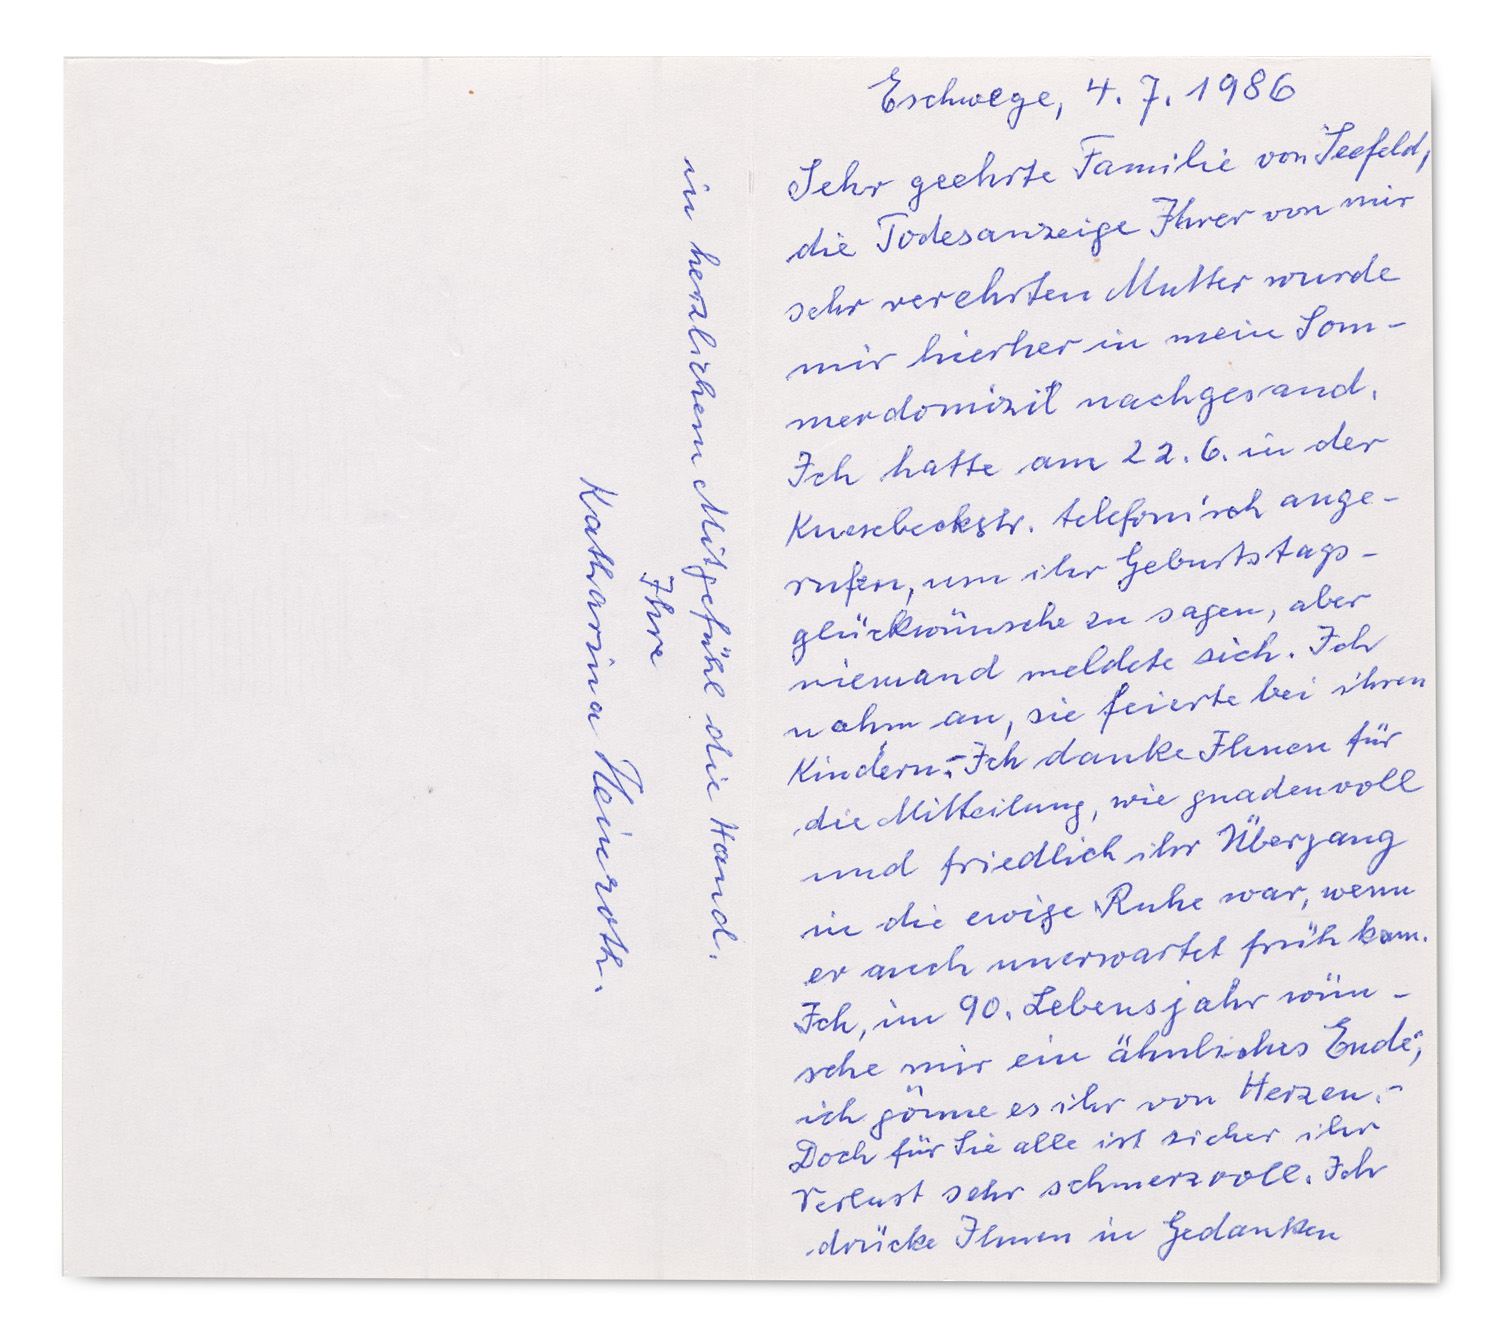 Eschwege, 4. 7. 1986
Sehr geehrte Familie von Seefeld,
die Todesanzeige Ihrer von mir
sehr verehrten Mutter wurde
mir hierher in mein Som-
merdomizil nachgesand.
Ich hatte am 22. 6. in der
Knesebeckstr. telefonisch ange-
rufen, um ihr Geburtstags-
glückwünsche zu sagen, aber
niemand meldete sich. Ich
nahm an, sie feierte bei ihren
Kindern.- Ich danke Ihnen für
die Mitteilung, wie gnadenvoll
und friedlich ihr Übergang
in die ewige Ruhe war, wenn
er auch unerwartet früh kam.
Ich, im 90. Lebensjahr wün-
sche mir ein ähnliches Ende,
ich gönne es ihr von Herzen.-
Doch für Sie alle ist sicher ihr
Verlust sehr schmerzvoll. Ich
drücke Ihnen in Gedanken
in herzlichem Mitgefühl die Hand.
Ihre
Katharina Heinroth.